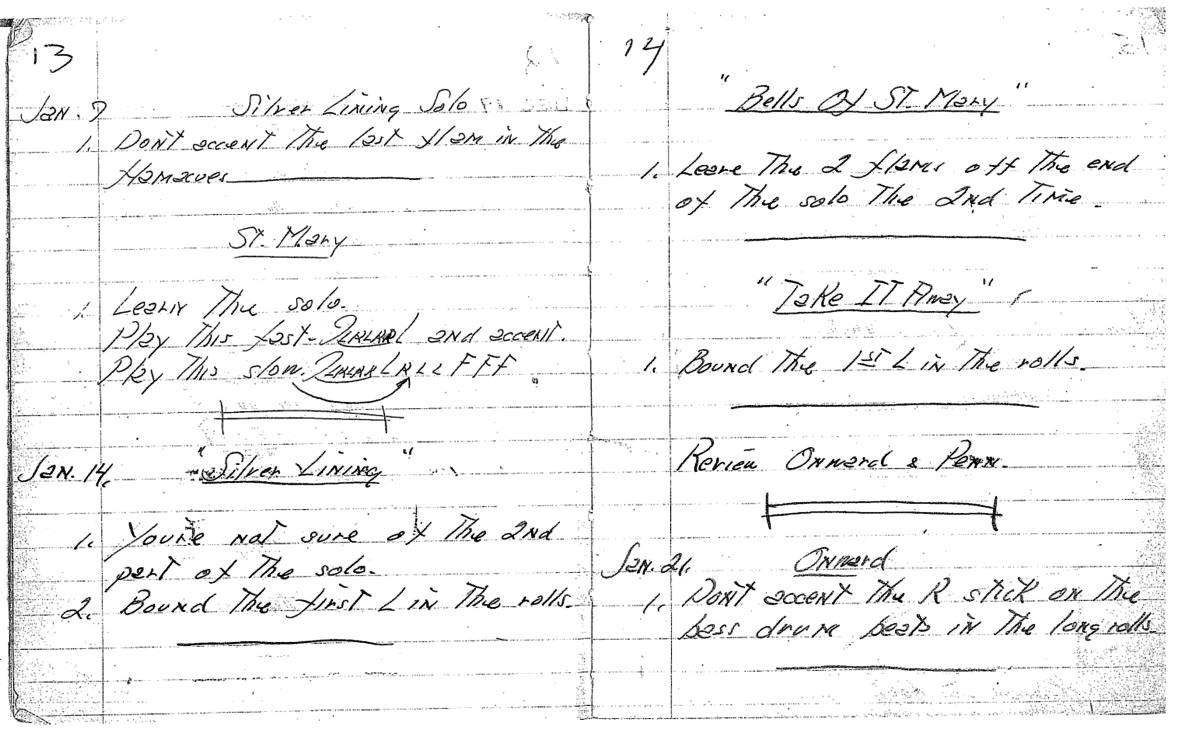 13
Jan. 7 Silver Lining Solo
1. Don't accent the last flam in the
flamacues
St. Mary
1. Learn the solo.
Play this fast- and accent.
Play this slow. FFF
Jan. 14. "Silver Lining"
1. You're not sure of the 2nd
part of the solo.
2. Bound the first L in the rolls.
14
"Bells Of St. Mary"
1. Leave the 2 flams off the end
of the solo the 2nd time.
"Take It Away"
1. Bound the 1st L in the rolls.
Review Onward & Penn.
Jan. 21. Onward
1. Don't accent the R stick on the
bass drum beats in the long rolls.